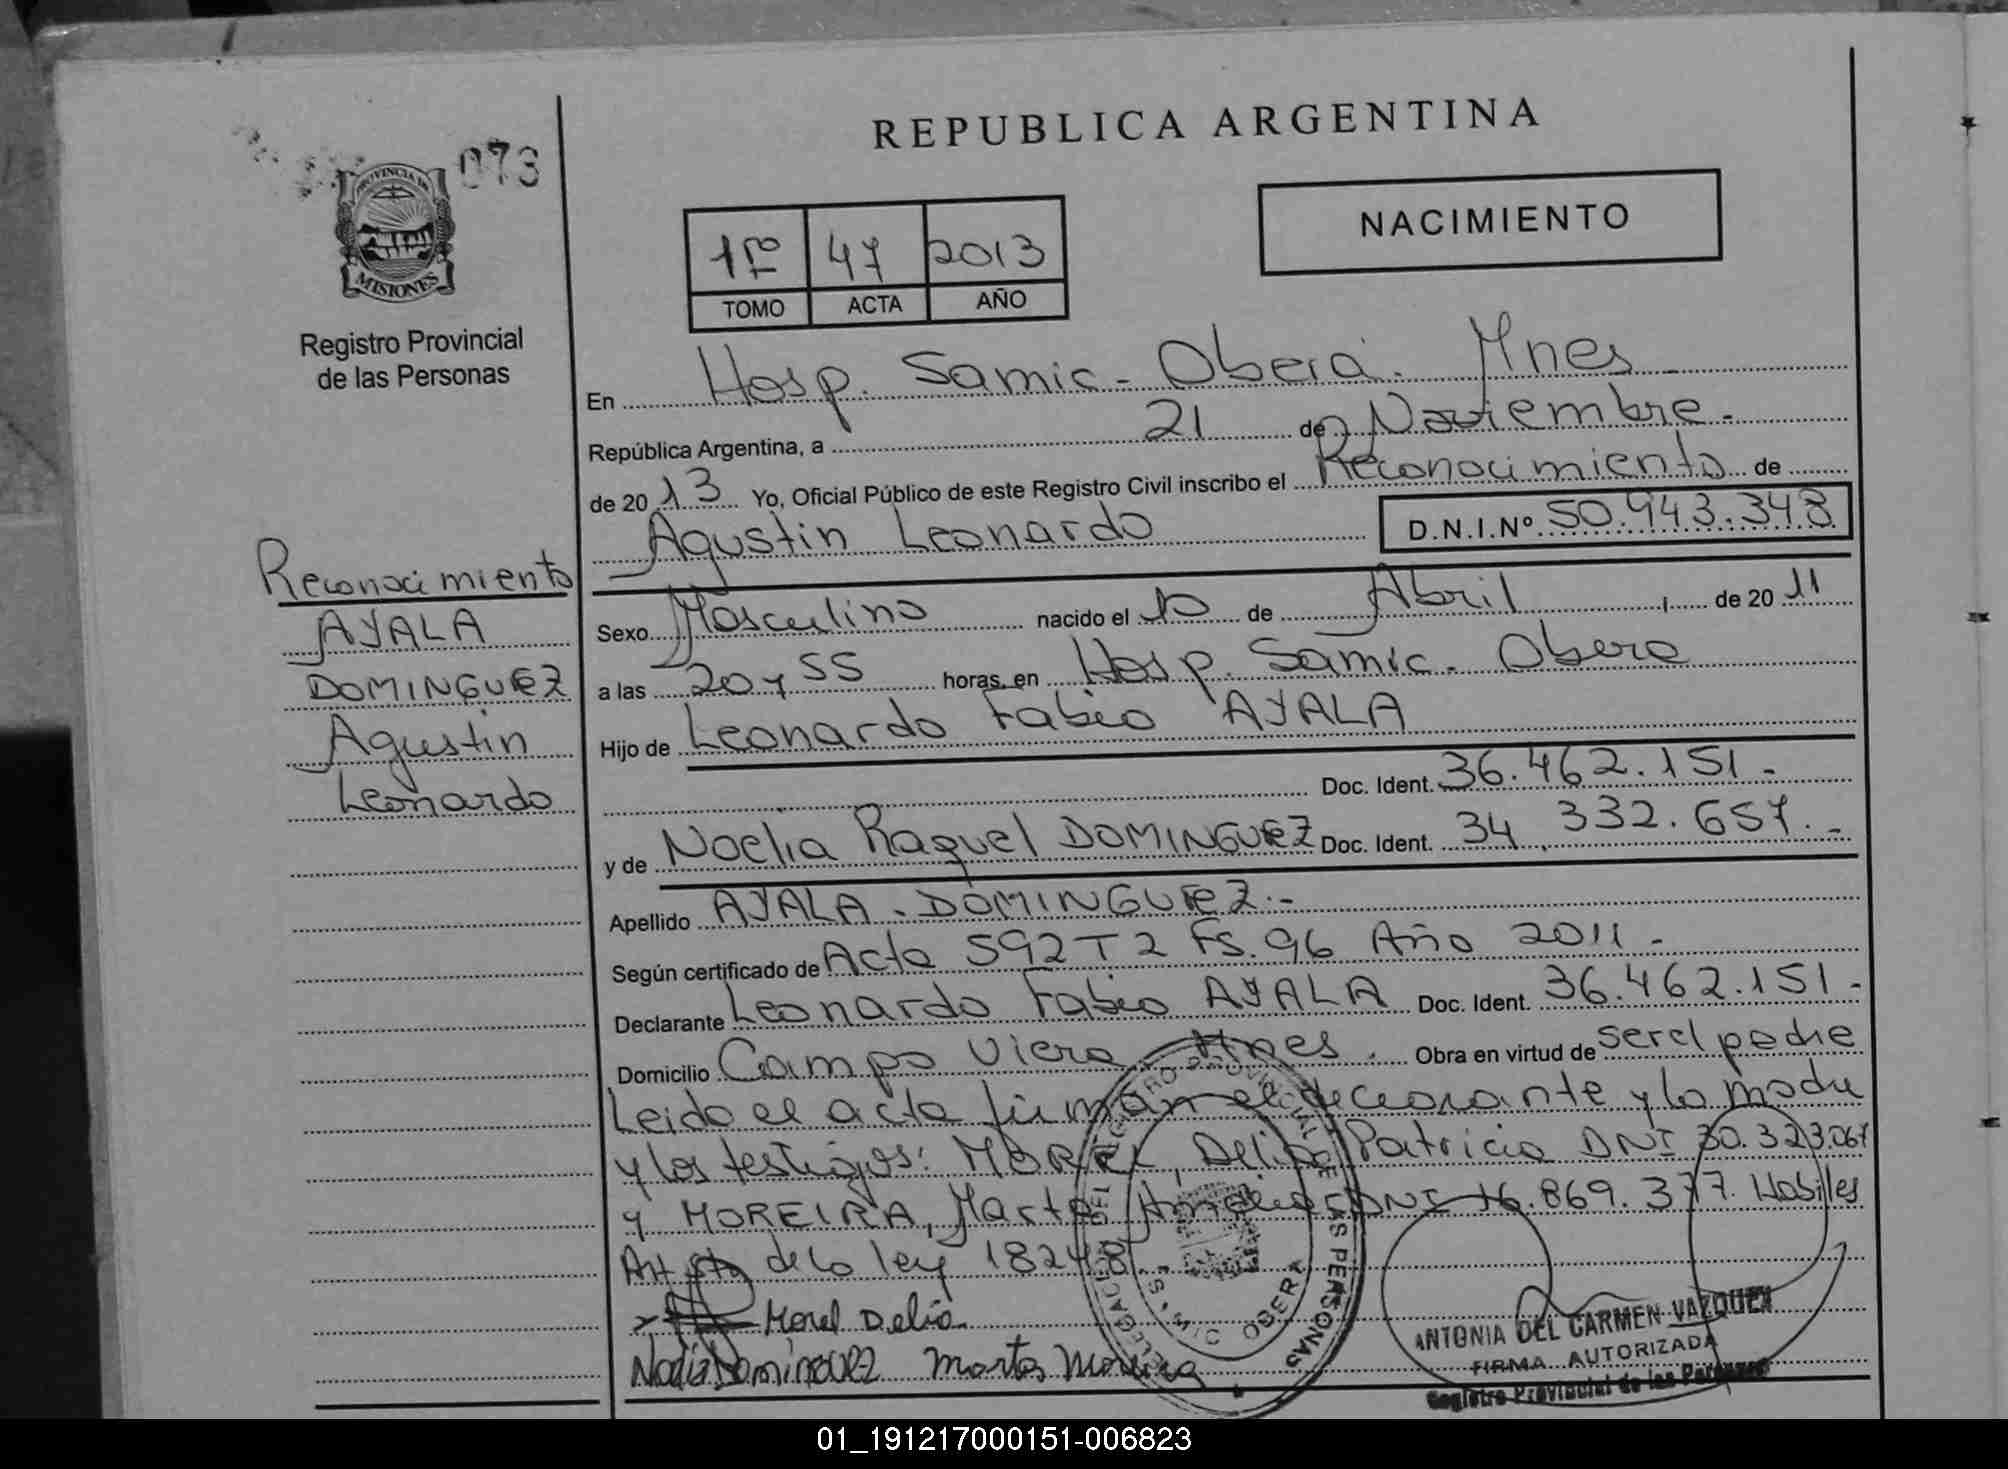 073
PROVINCIA DE
MISIONES
Registro Provincial
de las Personas
REPUBLICA ARGENTINA
NACIMIENTO
1ro 47 2013
TOMO ACTA AÑO
En Hosp. Samic - Oberá. Mnes
República Argentina, a 21 de Noviembre.
de 2013 Yo, Oficial Público de este Registro Civil inscribo el Reconocimiento de
Agustin Leonardo D.N.I.Nº 50.943.348
Reconocimiento
AYALA
DOMINGUEZ
Agustin
Leonardo
Sexo Masculino nacido el 10 de Abril de 2011
a las 20 y 55 horas, en Hosp. Samic. Obera
Hijo de Leonardo Fabio AYALA
Doc. Ident. 36.462.151.-
y de Noelia Raquel DOMINGUEZ Doc. Ident. 34.332.657.-
Apellido AYALA - DOMINGUEZ.-
Según certificado de Acta 592 T 2 Fs. 96 Año 2011.-
Declarante Leonardo Fabio AYALA Doc. Ident. 36.462.151.-
Domicilio Campo Viera. Mnes. Obra en virtud de ser el padre
Leido el acta firman el declarante y la madre
y los testigos: MOREL, Delia Patricia DNI 30.323.067
y MOREIRA, Marta DNI 16.869.377. Habiles
Art 5to de la ley 18248
Morel Delia
Dominguez Marta Moreira
OBERA
ANTONIA DEL CARMEN VAZQUEZ
FIRMA AUTORIZADA
Registro Provincial de las Personas
01_191217000151-006823